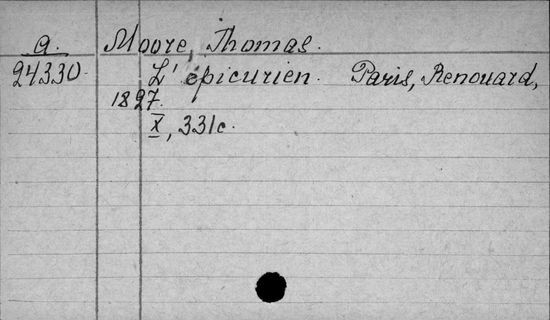 a. Moore, Thomas.
24330. L'épicurien. Paris, Renouard,
1827.
X, 331c.